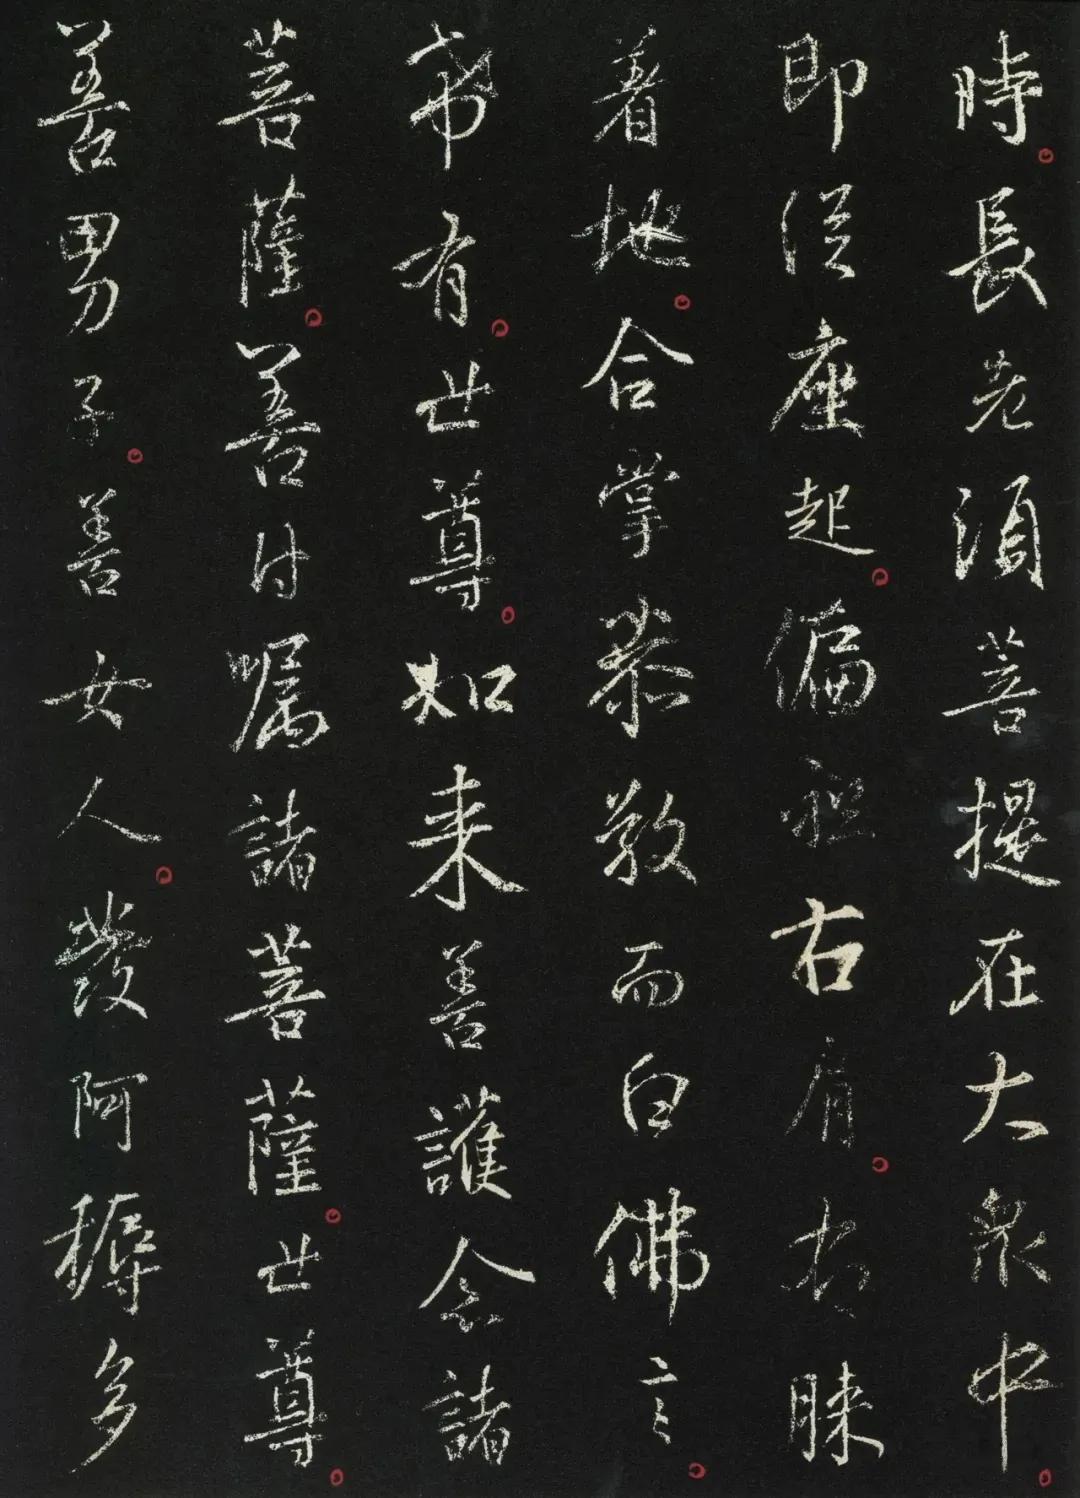 時。長老須菩提在大衆中。
即從座起。偏袒右肩。右膝
著地。合掌恭敬而白佛言。
希有。世尊。如来善護念諸
菩薩。善付嘱諸菩薩。世尊。
善男子。善女人。發阿耨多